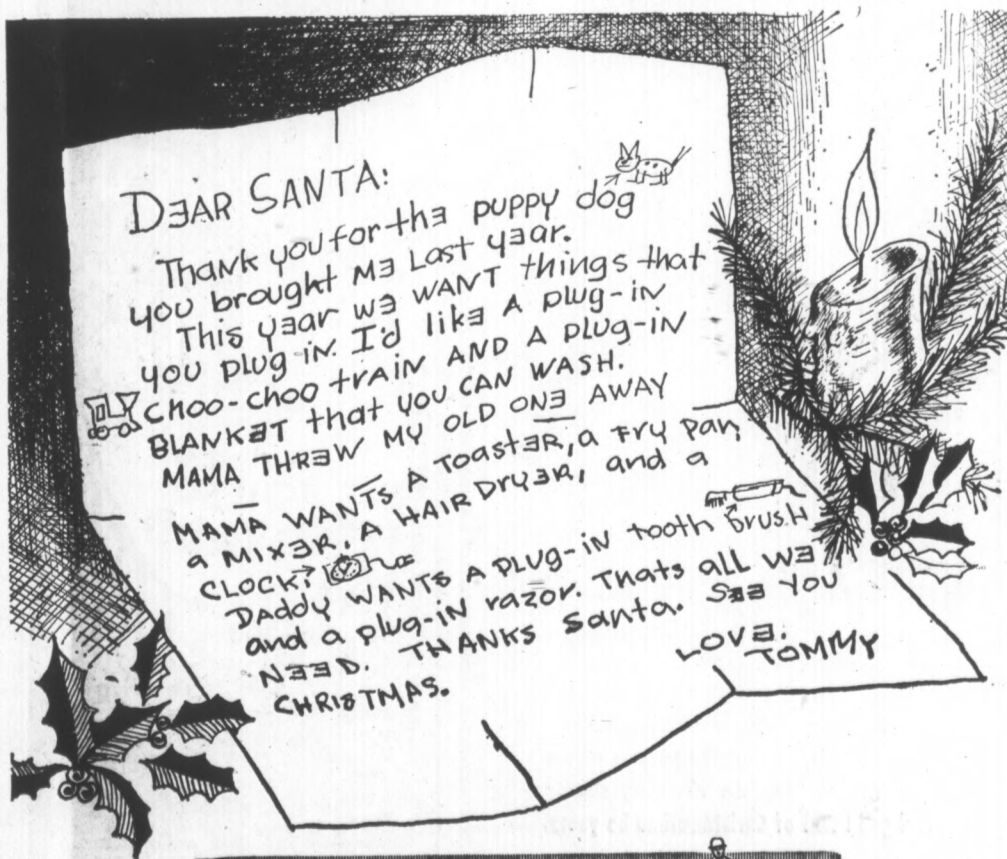 DEAR SANTA:
Thank you for the puppy dog
you brought ME Last year.
This year WE WANT things that
you plug-in. I'd like A plug-in
choo-choo traiN AND A plug-iN
BLANKET that you CAN WASH.
MAMA THREW MY OLD ONE AWAY
MAMA WANTS A TOASTER, a FRY pan,
a MIXER, A HAIR DryER, and a
CLOCK?
Daddy WANTS A PLUG-iN tooth brusH
and a plug-in razor. Thats all WE
NEED. THANKS Santa. SEE YOU
CHRISTMAS.
LOVE.
TOMMY